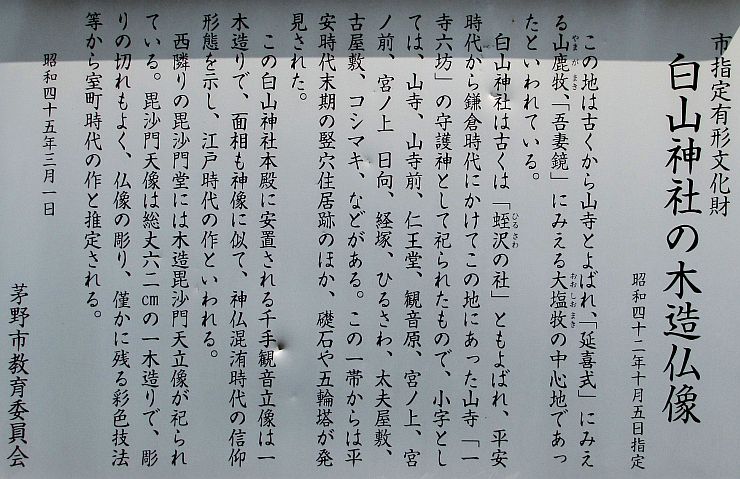 市指定有形文化財
白山神社の木造仏像
昭和四十二年十月五日指定
この地は古くから山寺とよばれ、「延喜式」にみえ
る山鹿牧、「吾妻鏡」にみえる大塩牧の中心地であっ
たといわれている。
白山神社は古くは「蛭沢の社」ともよばれ、平安
時代から鎌倉時代にかけてこの地にあった山寺「一
寺六坊」の守護神として祀られたもので、小字とし
ては、山寺、山寺前、仁王堂、観音原、宮ノ上、宮
ノ前、宮ノ上 日向、経塚、ひるさわ、太夫屋敷、
古屋敷、コシマキ、などがある。この一帯からは平
安時代末期の竪穴住居跡のほか、礎石や五輪塔が発
見された。
この白山神社本殿に安置される千手観音立像は一
木造りで、面相も神像に似て、神仏混淆時代の信仰
形態を示し、江戸時代の作といわれる。
西隣りの毘沙門堂には木造毘沙門天立像が祀られ
ている。毘沙門天像は総丈六二cmの一木造りで、彫
りの切れもよく、仏像の彫り、僅かに残る彩色技法
等から室町時代の作と推定される。
昭和四十五年三月一日
茅野市教育委員会